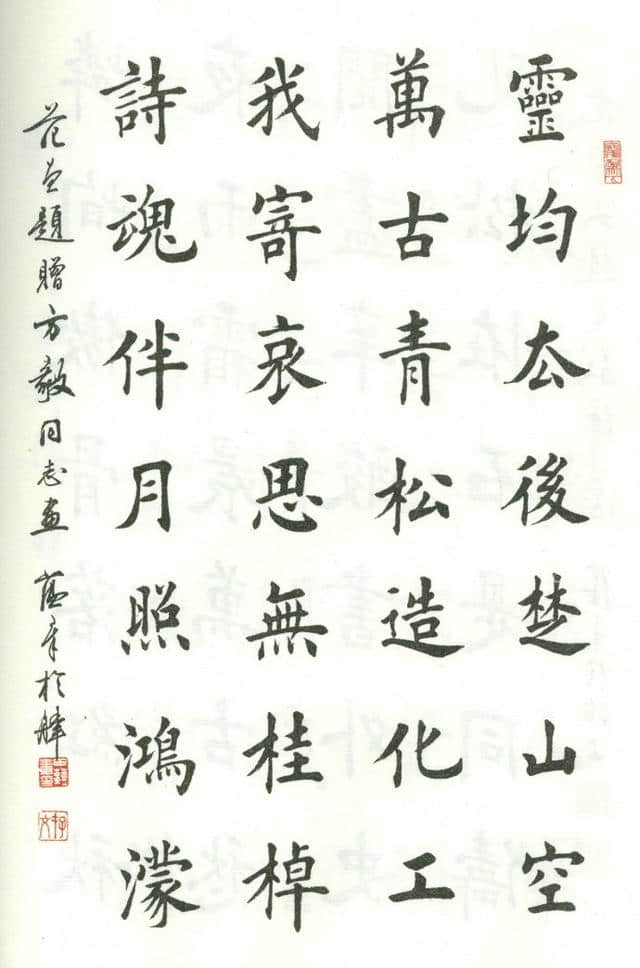 靈均去後楚山空
萬古青松造化工
我寄哀思無桂棹
詩魂伴月照鴻濛
范曾題贈方毅同志畫